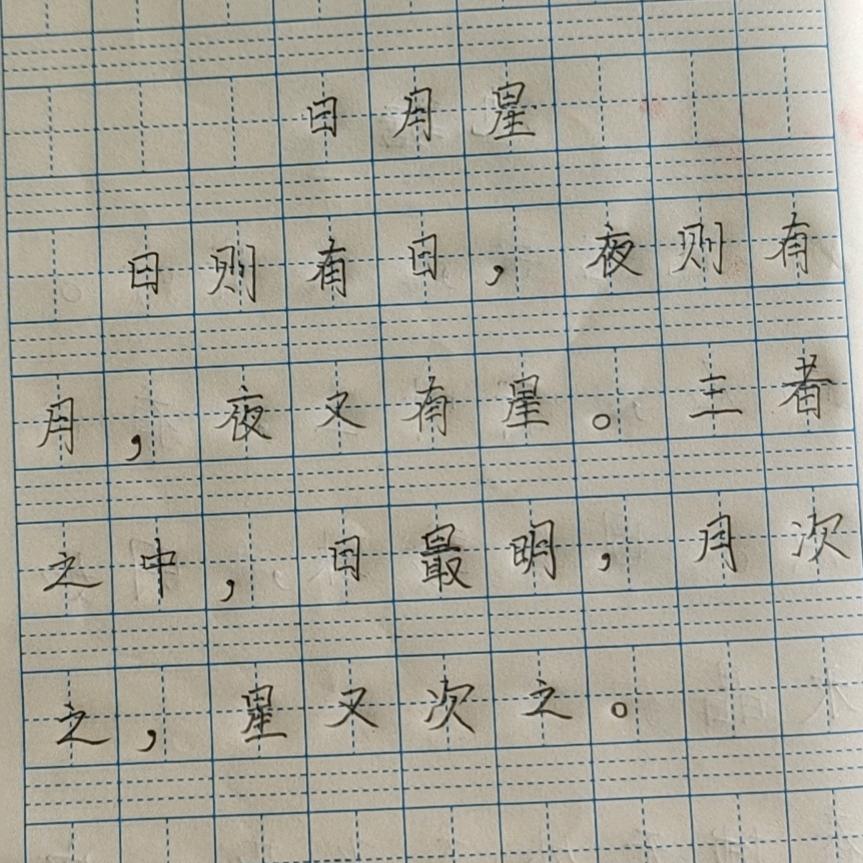 日月星
日则有日，夜则有
月，夜又有星。三者
之中，日最明，月次
之，星又次之。